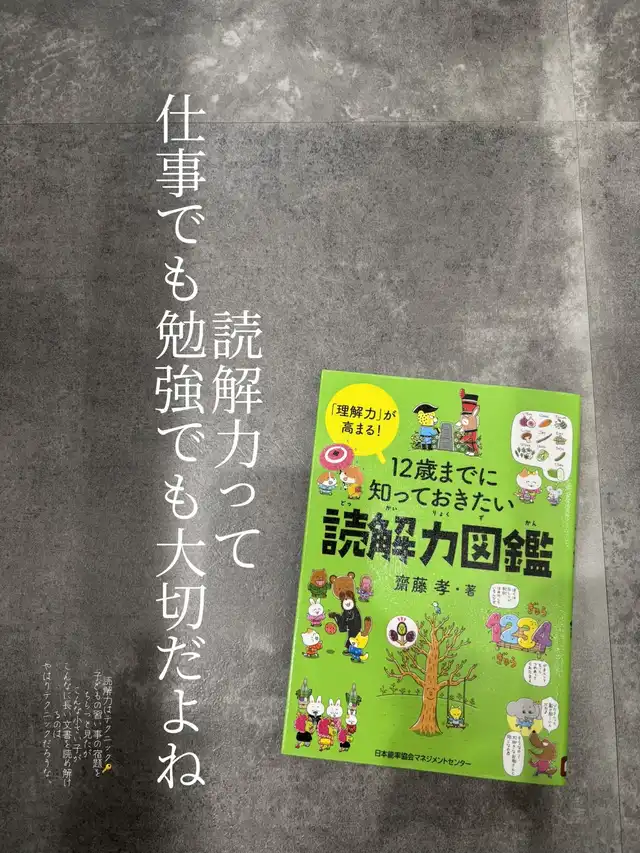 読解力って
仕事でも勉強でも大切だよね
読解力はテクニック🔑
子どもの習い事の宿題を
ちらっと見たが
こんな小さい子が
こんなに長い文書を読み解け
るのは、
やはりテクニックだろうな、
「理解力」が
高まる!
12歳までに
知っておきたい
どっ かい りょく ず かん
読解力図鑑
齋藤 孝・著
1234
ぎゅう
ぎゅう
日本能率協会マネジメントセンター